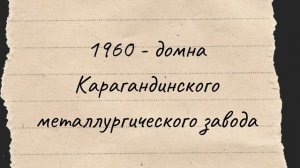 1960 - домна
Карагандинского
металлургического завода